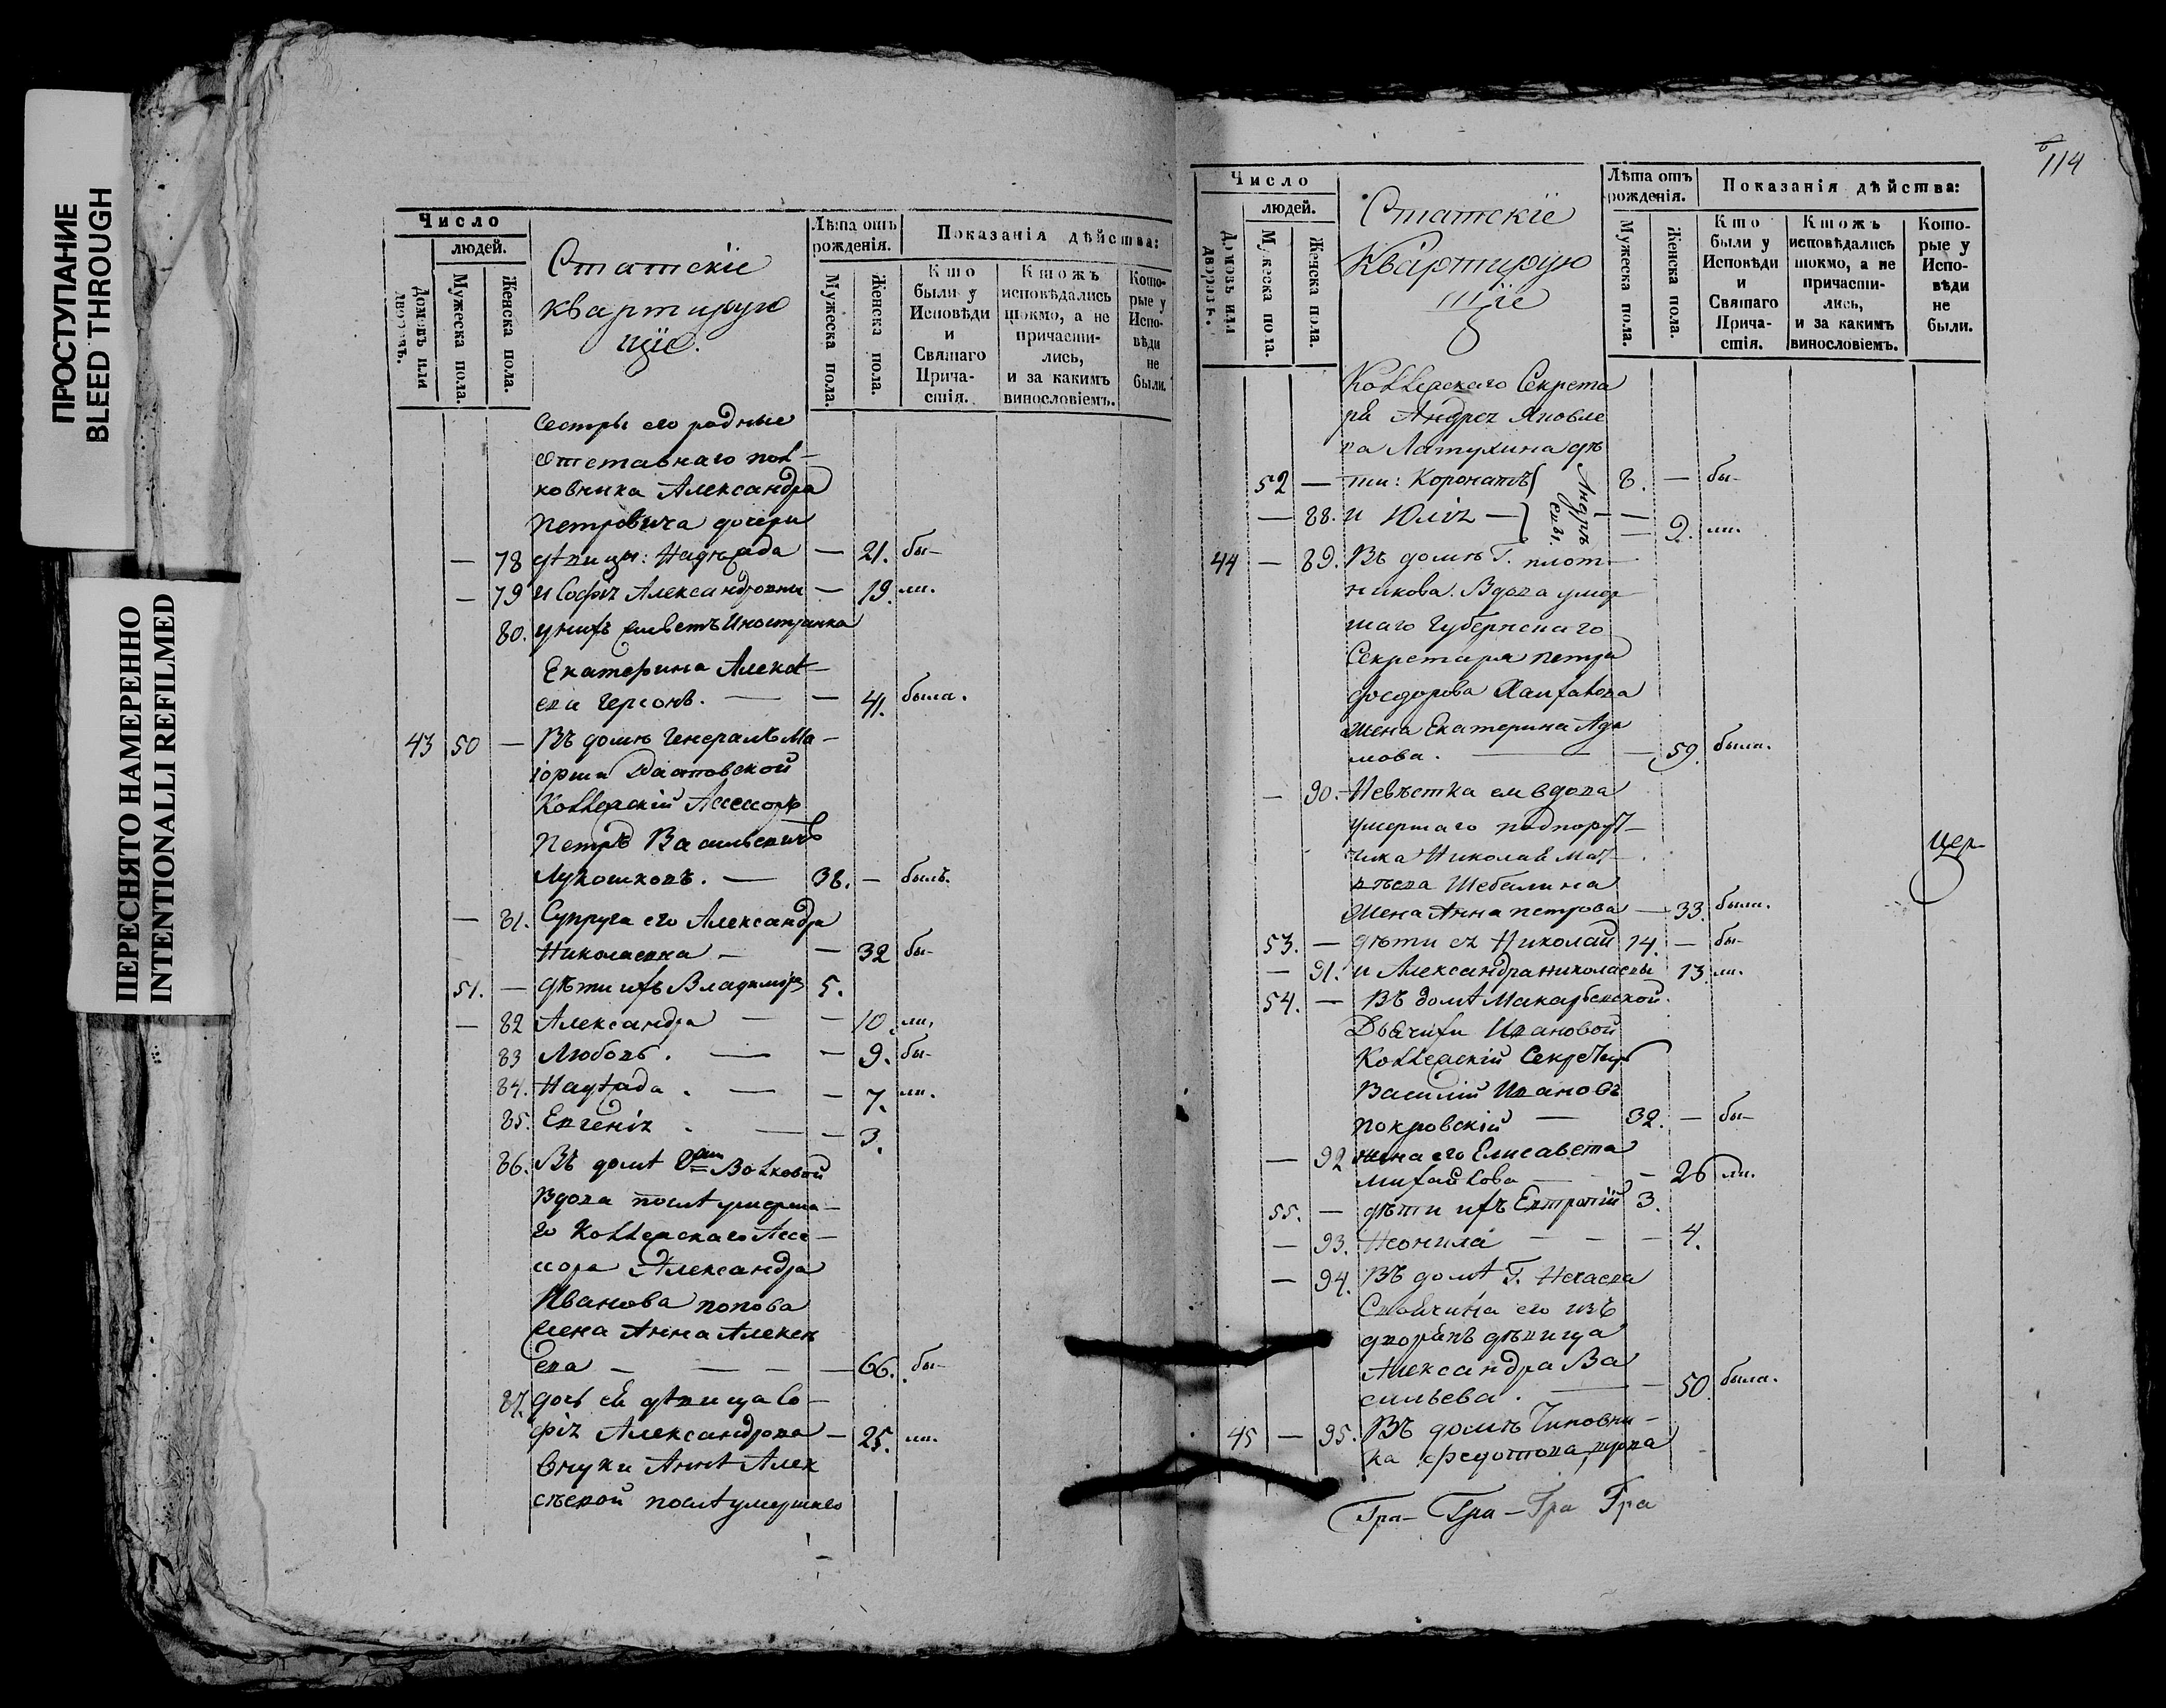 ПРОСТУПАНИЕ
BLEED THROUGH
ПЕРЕСНЯТО НАМЕРЕННО
INTENTIONALLI REFILMED
Число
людей.
Домовъ или дворовъ.
Мужеска пола.
Женска пола.
Статскіе
квартирую
щіе.
Лѣта отъ рожденія.
Мужеска пола.
Женска пола.
Показанія дѣйства:
Кто были у Исповѣди и Святаго Прича-стія.
Ктожъ исповѣдались токмо, а не причасти-лись, и за какимъ винословіемъ.
Кото-рые у Испо-вѣди не были.
сестры его родные
отставнаго пол-
ковника Александра
Петровича дочери
— 78 дѣвицы: Надѣжда — 21. бы-
— 79 и Софія Александровны — 19. ли.
80. у нихъ Иностранка
Екатерина Алексѣ-
ева Герсонъ. — — 41. была.
43 50 — Въ домѣ Генералъ Ма-
іорши
Коллежскій Ассесоръ
Петръ Васильевичъ
Лукошковъ. — 38. — былъ.
— 81. Супруга его Александра
Николаевна — — 32 бы-
51. — дѣти ихъ Владиміръ 5.
— 82 Александра — — 10. ли.
83 Любовь. — — 9. бы-
84. Надѣжда. — — 7. ли.
85. Евгенія. — — 3.
86. Въ домѣ Волковой
Вдова послѣ умерша-
го Коллежскаго Ассе-
сора Александра
Иванова Попова
жена Анна Алексѣ
ева — — — — 66. бы-
87. дочь ея дѣвица Со-
фія Александрова — 25. ли.
Внуки Аннѣ Алек
сѣевой послѣ умершаго
114
Число
людей.
Домовъ или дворовъ.
Мужеска пола.
Женска пола.
Статскіе
Квартирую
щіе
Лѣта отъ рожденія.
Мужеска пола.
Женска пола.
Показанія дѣйства:
Кто были у Исповѣди и Святаго Прича-стія.
Ктожъ исповѣдались токмо, а не причасти-лись, и за какимъ винословіемъ.
Кото-рые у Испо-вѣди не были.
Коллежскаго Секрета
ря Андрея Яковле
ва Латухина дѣ
52 — ти: Коронатъ Андрѣ 8. — бы-
— 88. и Юлія — евы — — 9. ли.
44 — 89. Въ домѣ Г. Плот-
никова. Вдова умер
шаго Губернскаго
Секретаря Петра
Феодорова
жена Екатерина Ада
мова. — — 59. была.
— 90. Невѣстка ея вдова
умершаго подпору-
чика Николая Мат-
вѣева Шебалина
Жена Анна Петрова — 33. была.
цер-
53. — дѣти ея Николай 14. — бы-
— 91. и Александра Николаевы 13. ли.
54. — Въ домѣ Макарьевской
Дьячихи Ивановой
Коллежскій Секретарь
Василій Ивановъ
Покровскій — 32. — бы-
— 92 жена его Елисавета
Михайлова — — 26 ли.
55. — дѣти ихъ Евтропій 3.
— 93. Неонила — — — 4.
— 94. Въ домѣ Г. Нечаева
Своячина его изъ
дворянъ дѣвица
Александра Ва
сильева. — — 50. была.
45 — 95. Въ домѣ Чиновни-
ка Федотова,
Гра- Гра- Гра Гра